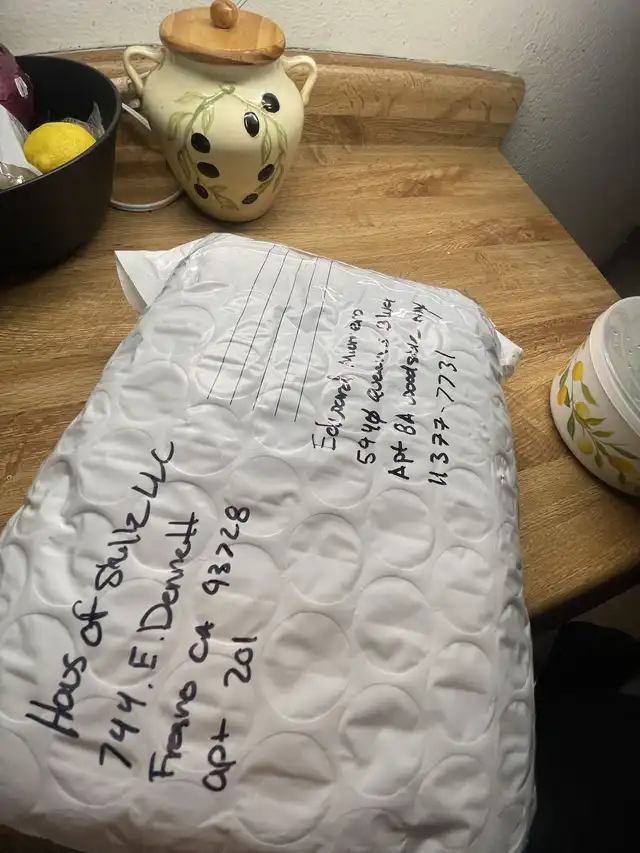 Edward Murrero
5940 Queens Blvd
Apt 8A Woodside NY
11377-7731
Haus of Skillz LLC
744. E. Dennett
Fresno CA 93728
apt 201